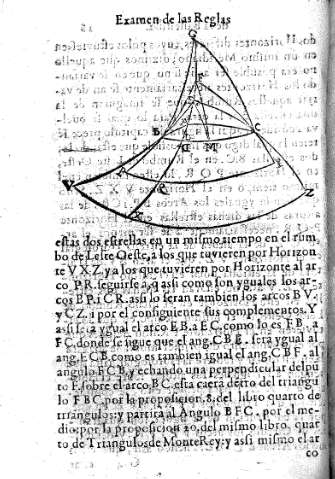 Examen de las Reglas
G
F
E
B
C
D
M
A
I
V
R
Z
X
estas dos estrellas en un mismo tiempo en el rum
bo de Leste Oeste, a los que tuvieren por Horizon
te VXZ, y a los que tuvieren por Horizonte al ar
co PR. seguirse a, q assi como son yguales los ar-
cos BP. i CR. assi lo seran tambien los arcos BV.
y CZ, i por el consiguiente sus complementos. Y
assi sera ygual el arco EB. a EC. como lo es FB. a
FC, donde se sigue que el ang. CBE. sera ygual al
ang. ECB. como es tambien igual el ang. CBF. al
angulo FCB, y echando una perpendicular del pū
to F. sobre el arco BC. esta caera detro del triangu
lo FBC. por la proposicion. 8. del libro quarto de
triangulos; y partira al Angulo BFC. por el me-
dio: por la proposicion 20, del mismo libro, quar
to de Triangulos de Monte Rey: y assi mismo el ar
co